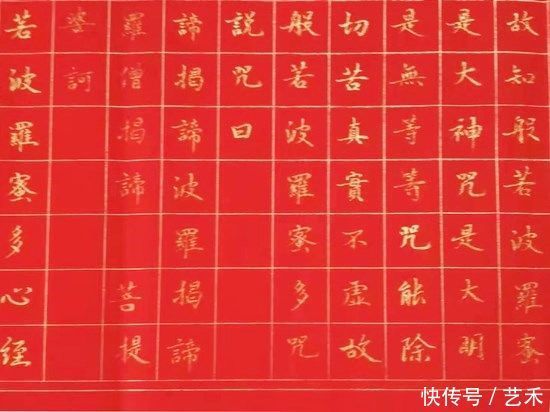 故知般若波羅蜜
是大神咒是大明
是無等等咒能除
切苦真實不虛故
般若波羅蜜多咒
說咒曰
諦揭諦波羅揭諦
羅僧揭諦 菩提
婆訶
若波羅蜜多心經
快传号/艺禾